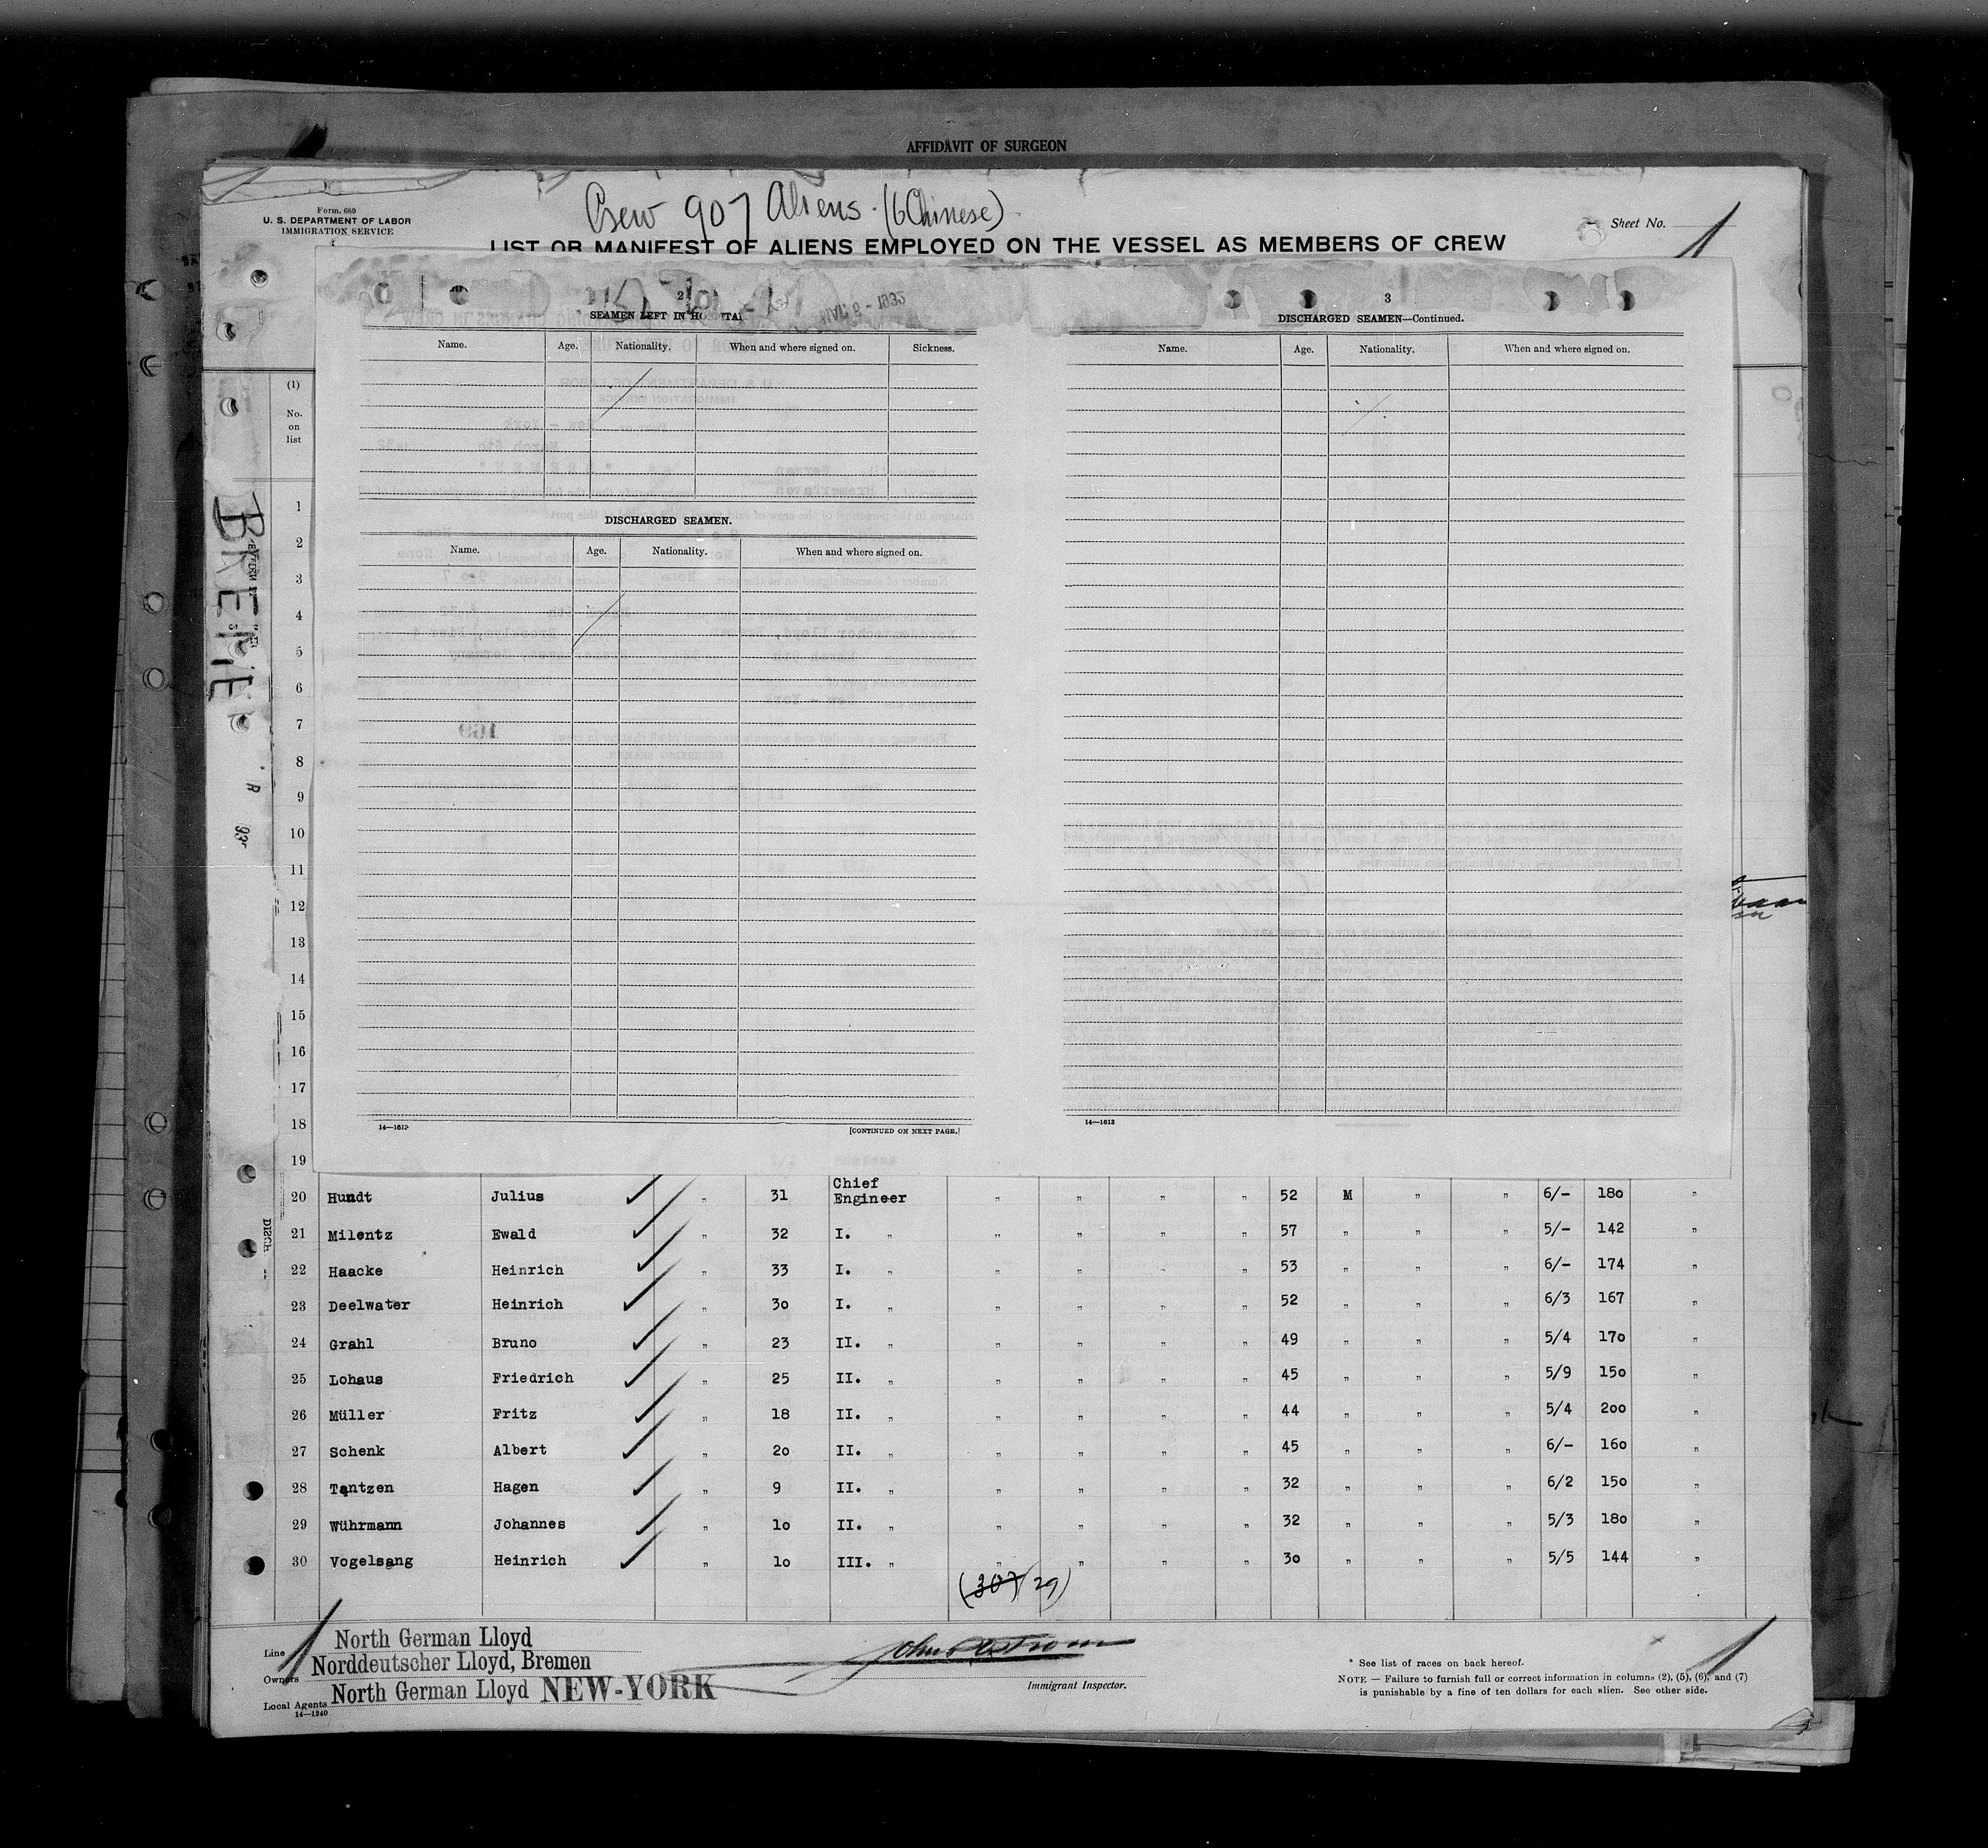 AFFIDAVIT OF SURGEON
Crew 907 Aliens. (6 Chinese)
Form. 680
U. S. DEPARTMENT OF LABOR
IMMIGRATION SERVICE
Sheet No. 1
LIST OR MANIFEST OF ALIENS EMPLOYED ON THE VESSEL AS MEMBERS OF CREW
2
3
SEAMEN LEFT IN HOSPITAL
Name. Age. Nationality. When and where signed on. Sickness.
DISCHARGED SEAMEN.
Name. Age. Nationality. When and where signed on.
14—1613
[CONTINUED ON NEXT PAGE.]
DISCHARGED SEAMEN—Continued.
Name. Age. Nationality. When and where signed on.
14—1613
(1)
No.
on
list
1
2
3
4
5
6
7
8
9
10
11
12
13
14
15
16
17
18
19
20 Hundt Julius " 31 Chief Engineer " " " " 52 M " " 6/- 180 "
21 Milentz Ewald " 32 I. " " " " " 57 " " " 5/- 142 "
22 Haacke Heinrich " 33 I. " " " " 53 " " " 6/- 174 "
23 Deelwater Heinrich " 30 I. " " " " " 52 " " " 6/3 167 "
24 Grahl Bruno " 23 II. " " " " " 49 " " " 5/4 170 "
25 Lohaus Friedrich " 25 II. " " " " " 45 " " " 5/9 150 "
26 Müller Fritz " 18 II. " " " " " 44 " " " 5/4 200 "
27 Schenk Albert " 20 II. " " " " " 45 " " " 6/- 160 "
28 Tantzen Hagen " 9 II. " " " " " 32 " " " 6/2 150 "
29 Wührmann Johannes " 10 II. " " " " " 32 " " " 5/3 180 "
30 Vogelsang Heinrich " 10 III. " " " " " 30 " " " 5/5 144 "
(307) 29)
Line North German Lloyd
Owners Norddeutscher Lloyd, Bremen
Local Agents North German Lloyd NEW-YORK
14—1240
Immigrant Inspector.
* See list of races on back hereof.
NOTE — Failure to furnish full or correct information in columns (2), (5), (6), and (7)
is punishable by a fine of ten dollars for each alien. See other side.